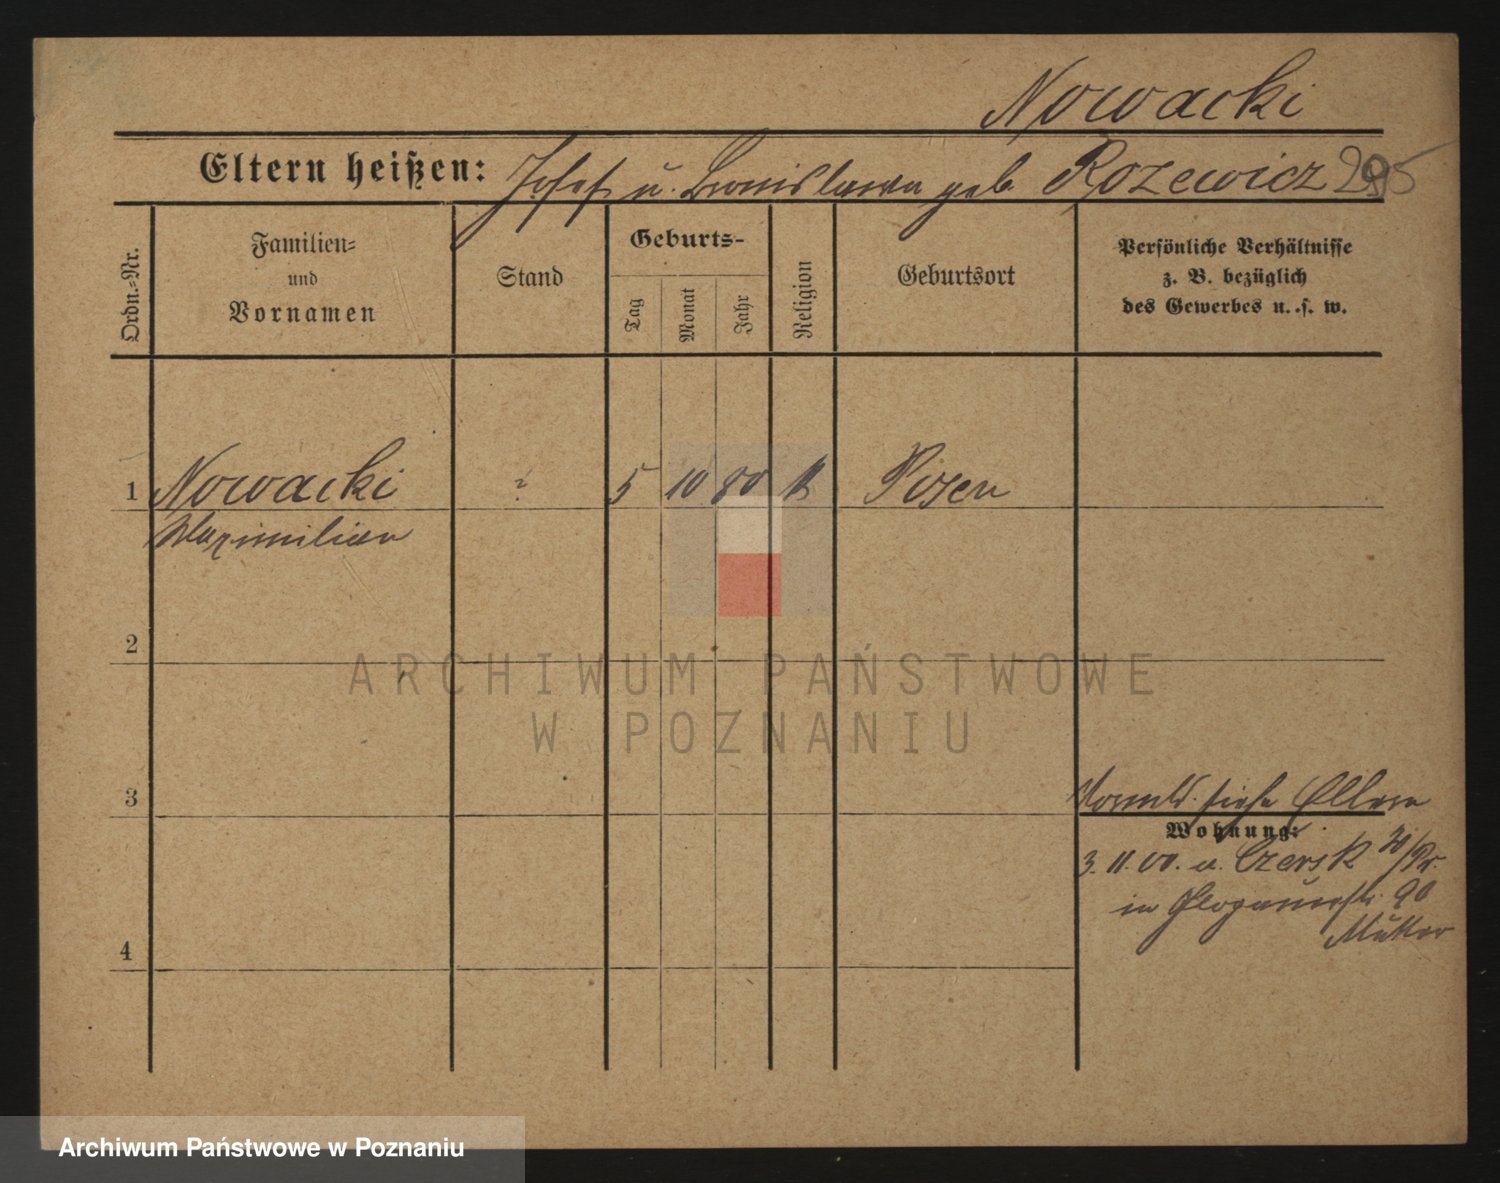 Nowacki
Eltern heißen: Josef u. Bronislawa geb. Rozewicz 295
Ordn.-Nr.
Familien-
und
Vornamen
Stand
Geburts-
Tag
Monat
Jahr
Religion
Geburtsort
Persönliche Verhältnisse
z. B. bezüglich
des Gewerbes u. s. w.
1 Nowacki 5 10 80 k Posen
Maximilian
2
3
siehe Eltern
Wohnung:
3. 11. 00. a. Czersk
in Glogauerstr. 90
Mutter
4
ARCHIWUM PAŃSTWOWE
W POZNANIU
Archiwum Państwowe w Poznaniu